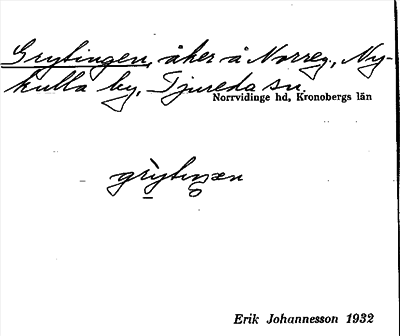 Grytingen, åker å Norreg., Ny-
kulla by, Tjureda sn.
Norrvidinge hd, Kronobergs län
grỳtiŋən
Erik Johannesson 1932